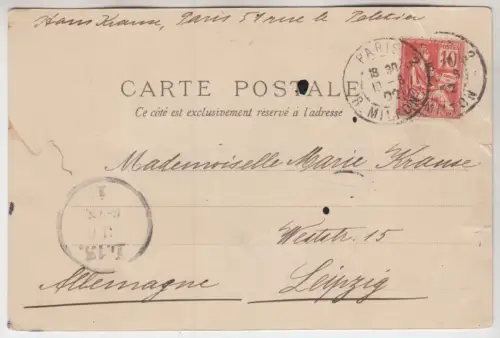 Hans Krause, Paris 57 rue le Peletier
CARTE POSTALE
Ce côté est exclusivement reservé à l'adresse
PARIS
R. MILTON
10
Mademoiselle Marie Krause
Weststr. 15
Leipzig
Allemagne